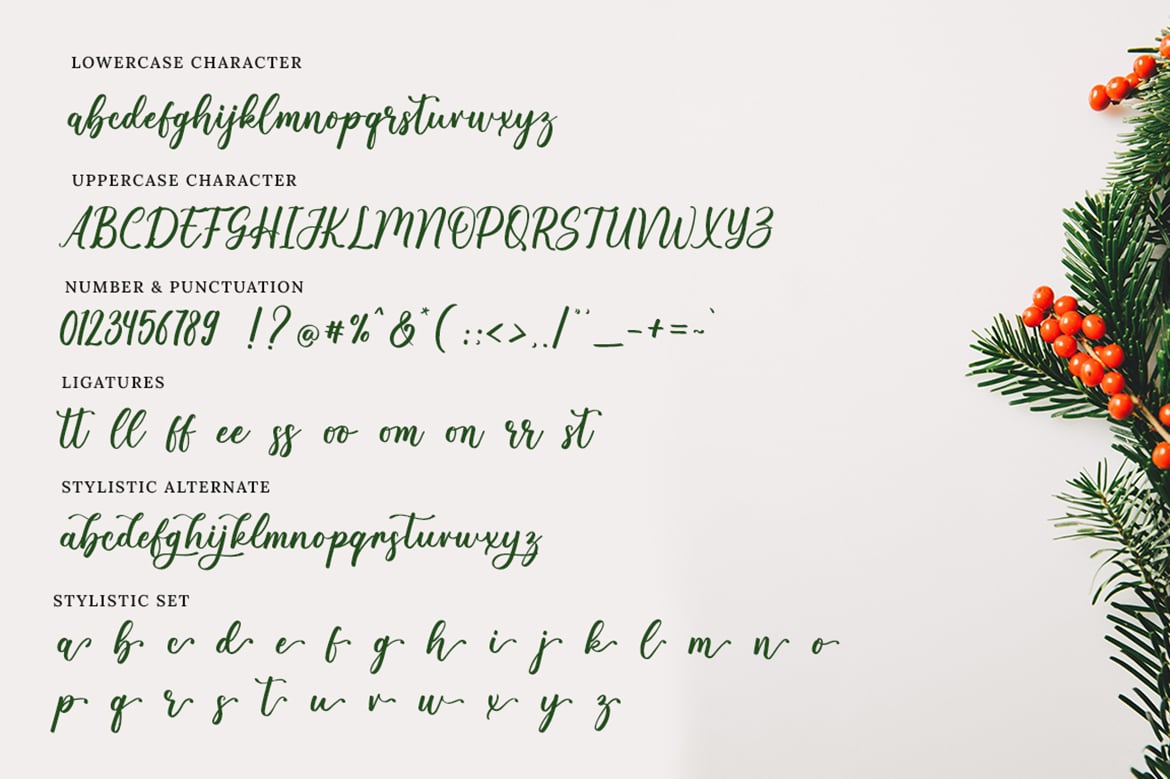 LOWERCASE CHARACTER
abcdefghijklmnopqrstuvwxyz
UPPERCASE CHARACTER
ABCDEFGHIJKLMNOPQRSTUVWXYZ
NUMBER & PUNCTUATION
0123456789 !?@#%^&*( :;<>,./"'_-+=~`
LIGATURES
tt ll ff ee ss oo om on rr st
STYLISTIC ALTERNATE
abcdefghijklmnopqrstuvwxyz
STYLISTIC SET
a b c d e f g h i j k l m n o
p q r s t u v w x y z